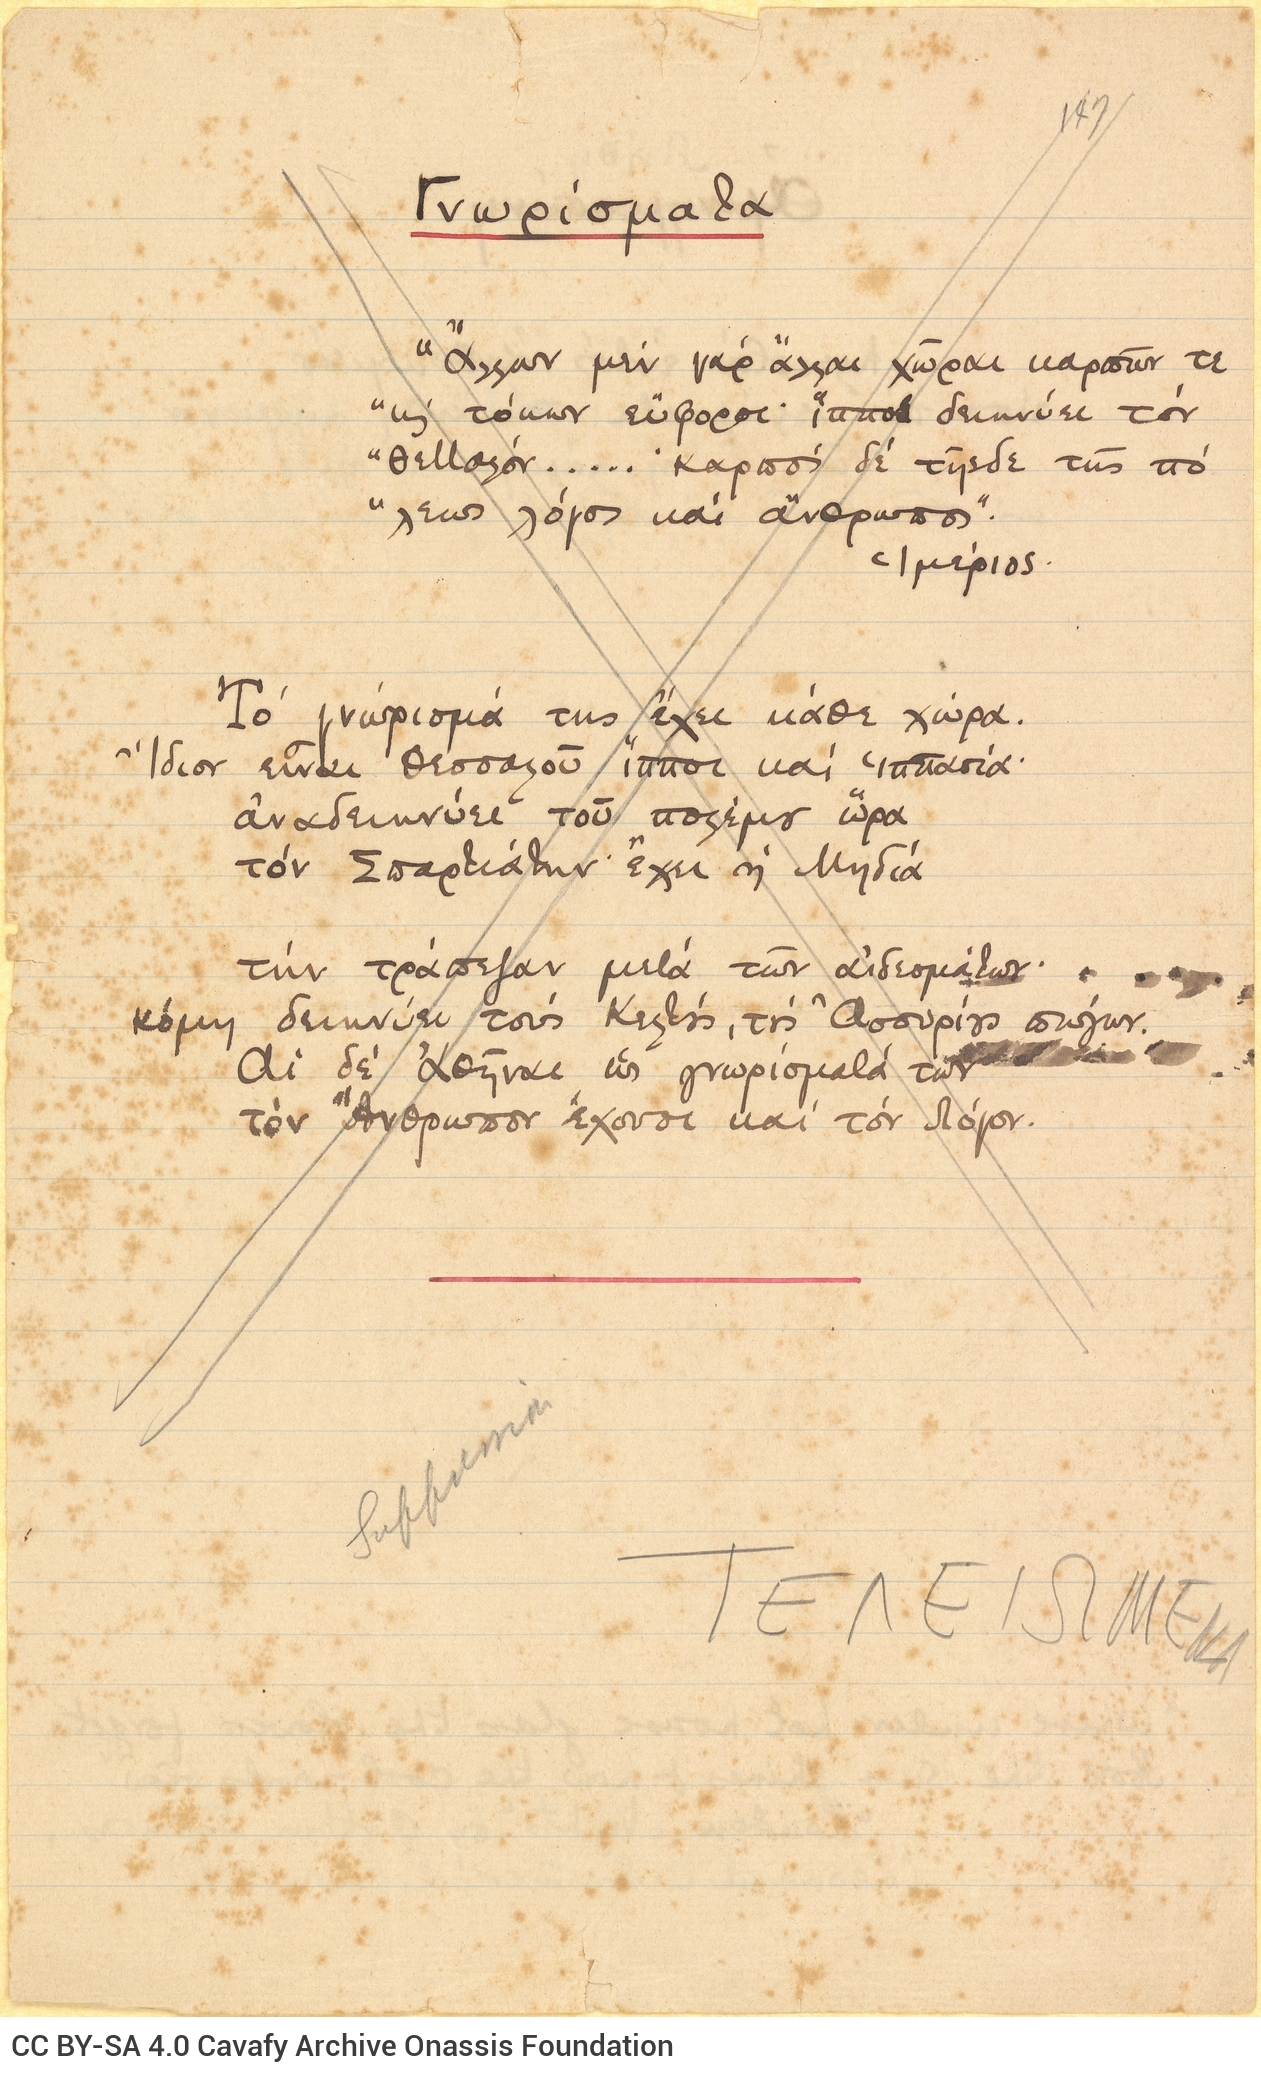 147
Γνωρίσματα
“Ἄλλων μέν γάρ ἄλλαι χῶραι καρπῶν τε
“κὶ τόκων εὔφοροι· ἵπποι δεικνύει τόν
“Θεσσαλόν..... Καρποὶ δέ τῆςδε τῆς πό
“λεως λόγος καί ἄνθρωποι”.
Ἱμέριος.
Τό γνώρισμά της ἔχει κάθε χώρα.
Ἴδιον εἶναι Θεσσαλοῦ ἵπποι καί ἱππασία·
ἀναδεικνύει τοῦ πολέμου ὥρα
τόν Σπαρτιάτην· ἔχει ἡ Μηδία
τήν τράπεζαν μετά τῶν αἰδεσμάτων·
κόμη δεικνύει τούς Κελτούς, τούς Ἀσσυρίους πώγων.
Αἱ δέ Ἀθῆναι ὡς γνωρίσματά των
τόν Ἄνθρωπον ἔχουσι καί τόν Λόγον.
ΤΕΛΕΙΩΜΕΝΑ
CC BY-SA 4.0 Cavafy Archive Onassis Foundation